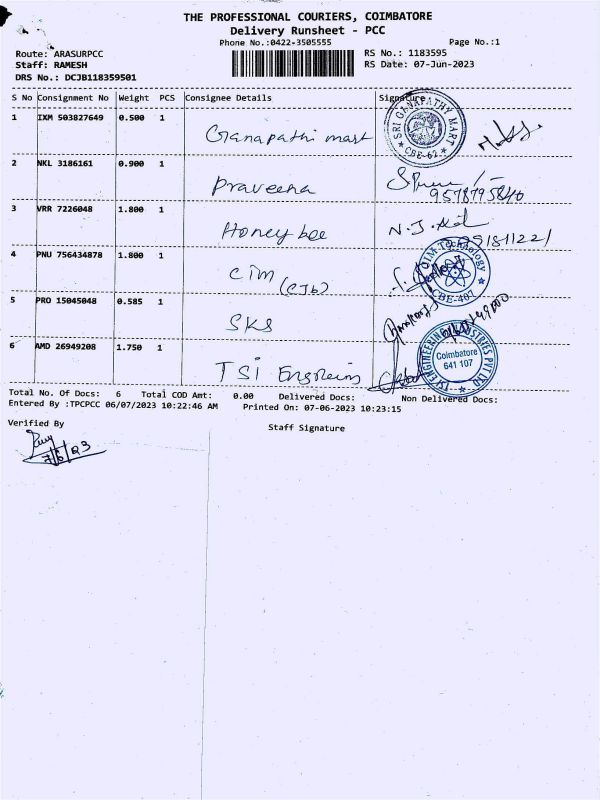 THE PROFESSIONAL COURIERS, COIMBATORE
Delivery Runsheet - PCC
Phone No.:0422-3505555 Page No.:1
Route: ARASURPCC RS No.: 1183595
Staff: RAMESH RS Date: 07-Jun-2023
DRS No.: DCJB118359501
S No Consignment No Weight PCS Consignee Details Signature
1 IXM 503827649 0.500 1
Ganapathi mart
SRI GANAPATHY MART
CBE-62
2 NKL 3186161 0.900 1
Praveena
3 VRR 7226048 1.800 1
Honey bee
4 PNU 756434878 1.800 1
CIM (CJB)
Technology
CBE-407
5 PRO 15045048 0.585 1
SKS
6 AMD 26949208 1.750 1
TSI Engneeins
ENGINEERING INDUSTRIES PVT LTD
Coimbatore
641 107
Total No. Of Docs: 6 Total COD Amt: 0.00 Delivered Docs: Non Delivered Docs:
Entered By :TPCPCC 06/07/2023 10:22:46 AM Printed On: 07-06-2023 10:23:15
Verified By Staff Signature
7/6/23